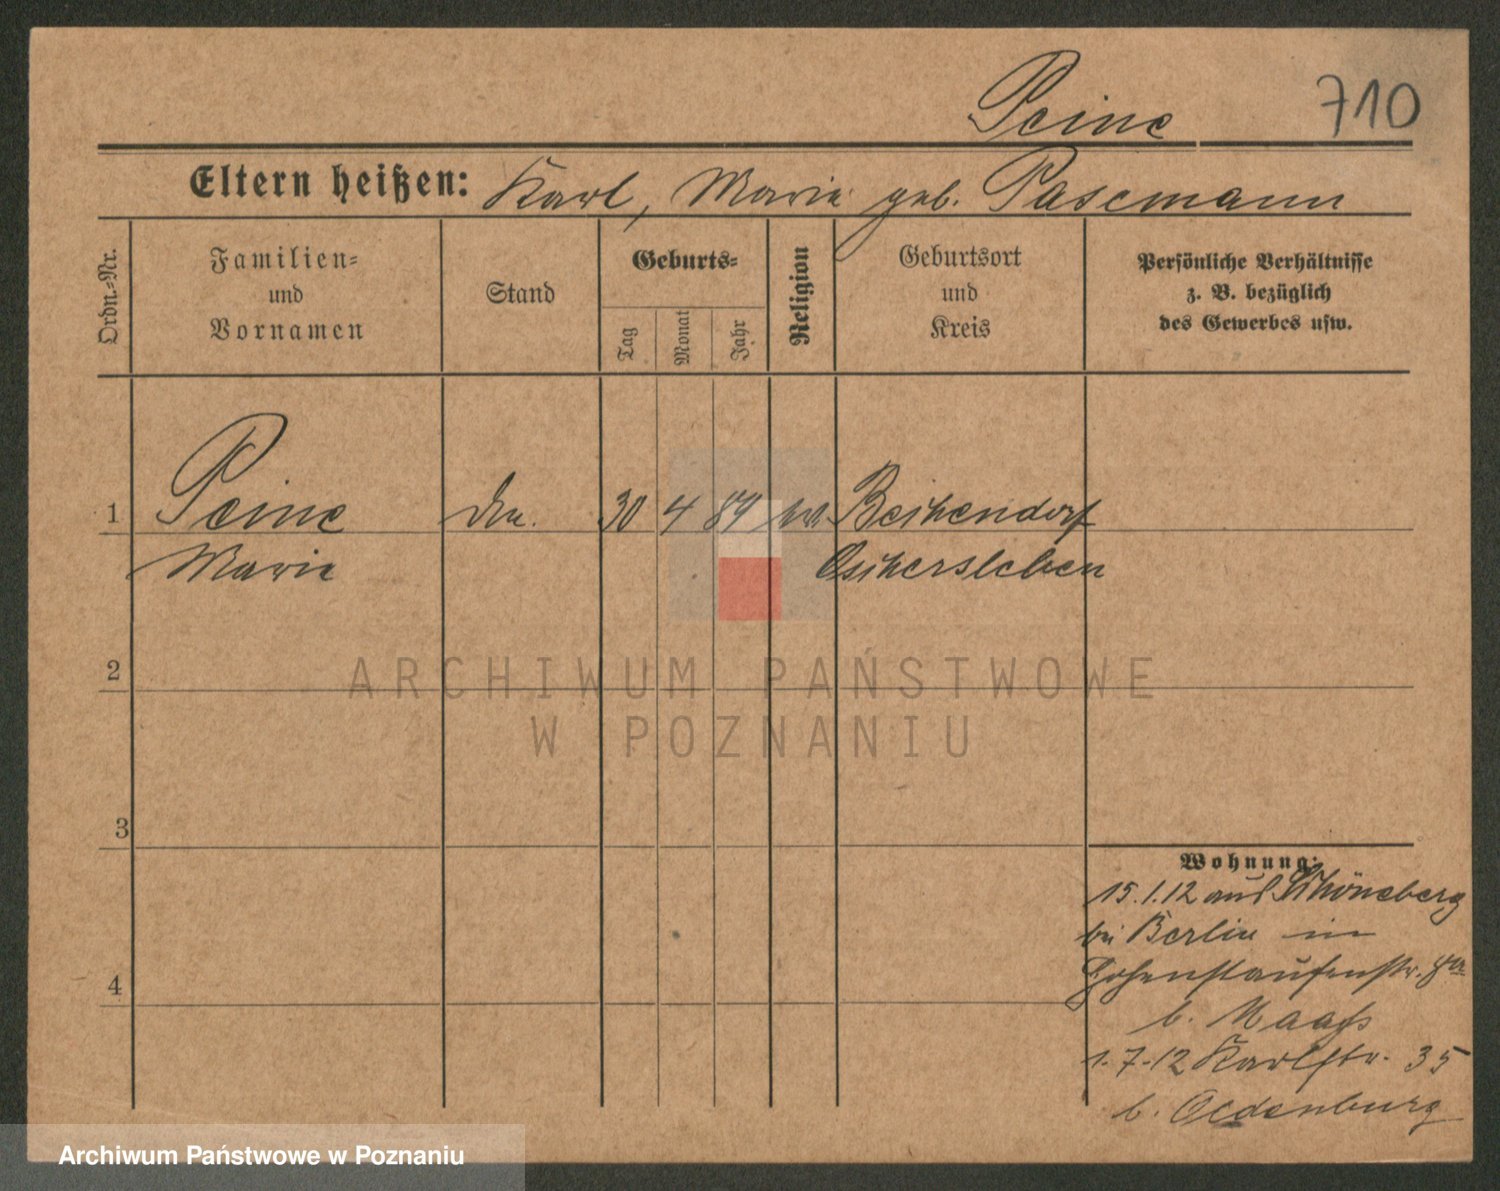 Peine 710
Eltern heißen: Karl, Marie geb. Pasemann
Ordn.-Nr.
Familien-
und
Vornamen
Stand
Geburts-
Tag
Monat
Jahr
Religion
Geburtsort
und
Kreis
Persönliche Verhältnisse
z. B. bezüglich
des Gewerbes usw.
1 Peine 30 4 89 ev. Beckendorf
Marie Oschersleben
2
ARCHIWUM PAŃSTWOWE
W POZNANIU
3
Wohnung:
15.1.12 aus Schöneberg
bei Berlin in
Hohenstaufenstr. 8a
4
b. Maass
1.7.12 Karlstr. 35
b. Oldenburg
Archiwum Państwowe w Poznaniu